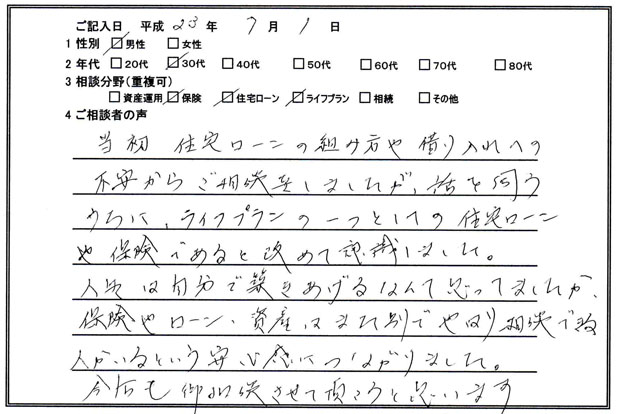 ご記入日 平成 23 年 7 月 1 日
1 性別 ☑男性 □女性
2 年代 □20代 ☑30代 □40代 □50代 □60代 □70代 □80代
3 相談分野(重複可)
□資産運用 ☑保険 ☑住宅ローン ☑ライフプラン □相続 □その他
4 ご相談者の声
当初 住宅ローンの組み方や借り入れへの
不安からご相談をしましたが、話を伺う
うちに、ライフプランの一つとしての住宅ローン
や保険であると改めて認識しました。
人生は自分で築きあげるなんて思ってましたが、
保険やローン、資産はまた別でやはり相談できる
人がいるという安心感につながりました。
今後も御相談させて頂こうと思います